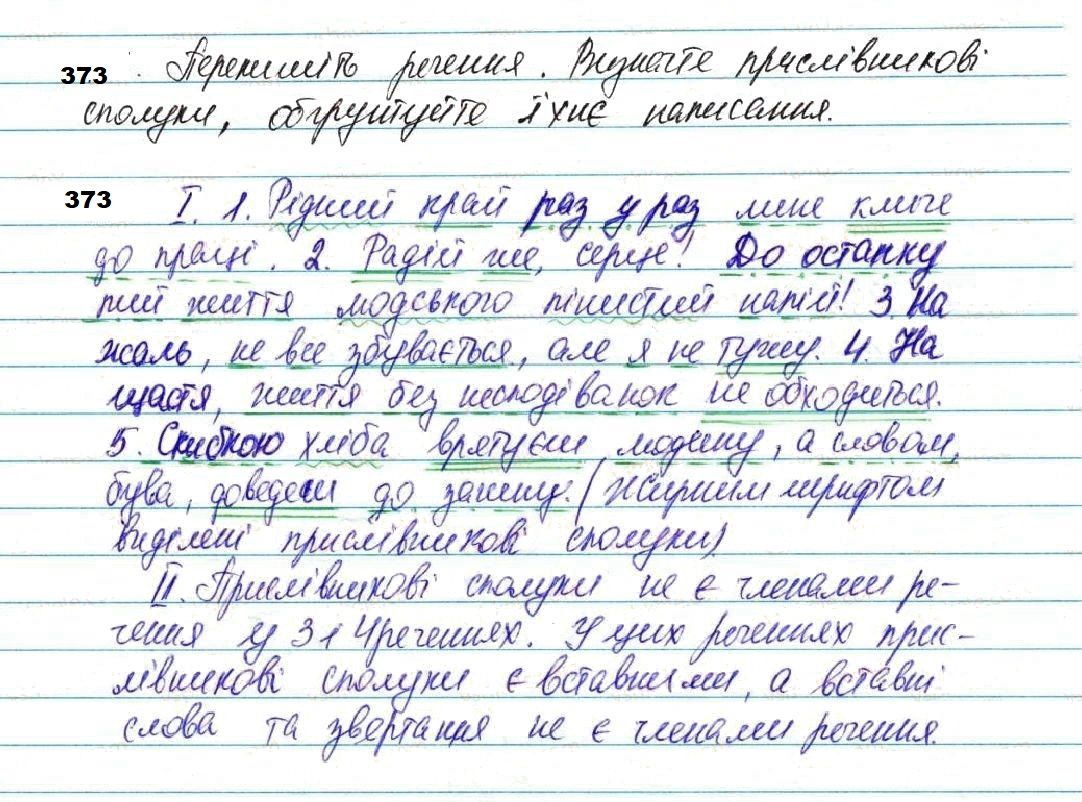 373 Перепишіть речення. Визначте прислівникові
сполуки, обґрунтуйте їхнє написання.
373 І. 1. Рідний край раз у раз мене кличе
до праці. 2. Радій же, серце! До останку
пий життя людського пінистий напій! 3. На
жаль, не все збувається, але я не тужу. 4. На
щастя, життя без несподіванок не обходиться.
5. Скибкою хліба врятуєш людину, а словом,
бува, доведеш до загину. (Жирним шрифтом
виділені прислівникові сполуки)
ІІ. Прислівникові сполуки не є членами ре-
чення у 3 і 4 реченнях. У цих реченнях прис-
лівникові сполуки є вставними, а вставні
слова та звертання не є членами речення.